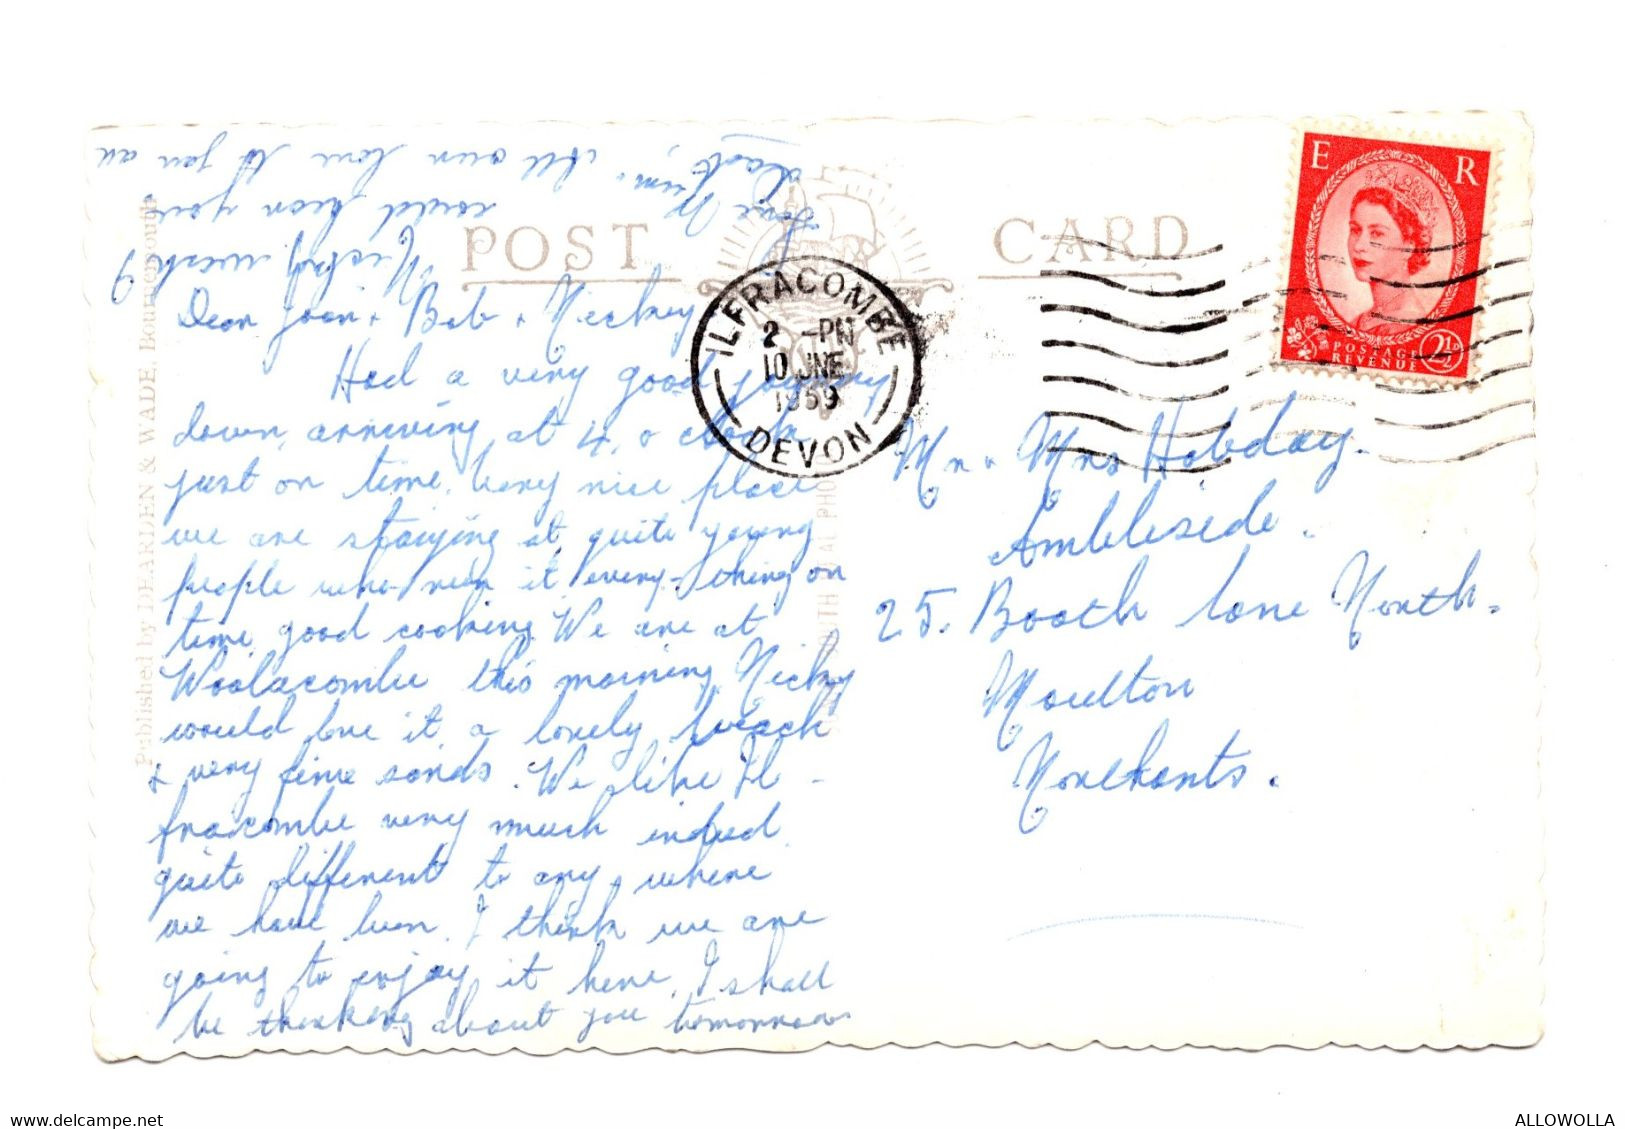 POST CARD
E R
POSTAGE
REVENUE
2½D
ILFRACOMBE
2 - PM
10 JNE
1959
DEVON
Published by DEARDEN & WADE, Bournemouth
Dear Joan + Bob + Nickey
Had a very good journey
down, arriving at 4, o clock
just on time. Very nice place
we are staying at, quite young
people who run it, every-thing on
time, good cooking. We are at
Woolacombe this morning, Nicky
would love it, a lovely beach
+ very fine sands. We like Il-
fracombe very much indeed.
quite different to any, where
we have been. I think we are
going to enjoy it here. I shall
be thinking about you tomorrow
Nicky work?
could hear your
love Mum.
All our love to you all
Mr. + Mrs Hobday.
Ambleside.
25. Booth Lane North.
Moulton
Northants.
ALLOWOLLA
delcampe.net